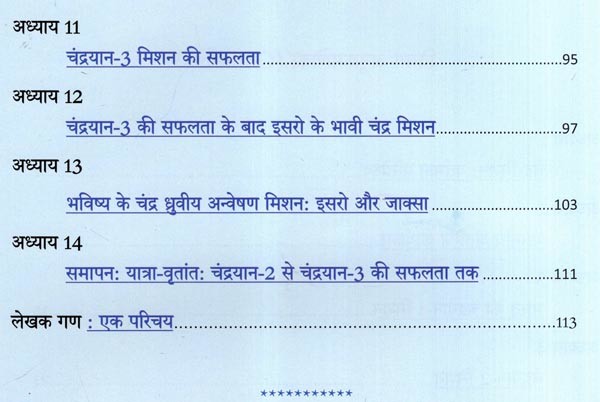 अध्याय 11
चंद्रयान-3 मिशन की सफलता..........................................................................95
अध्याय 12
चंद्रयान-3 की सफलता के बाद इसरो के भावी चंद्र मिशन.............................97
अध्याय 13
भविष्य के चंद्र ध्रुवीय अन्वेषण मिशन: इसरो और जाक्सा.............................103
अध्याय 14
समापन: यात्रा-वृतांत: चंद्रयान-2 से चंद्रयान-3 की सफलता तक.................111
लेखक गण : एक परिचय...................................................................................113
***********